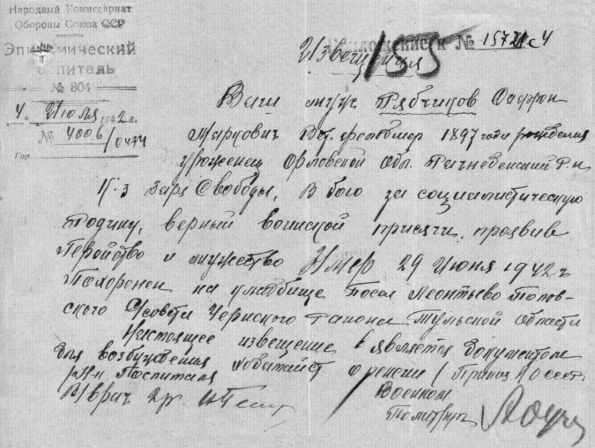 Народный Комиссариат
Обороны Союза ССР
Эпидемический
Госпиталь
№ 804
4. Июля 1942 г.
№ 4006/0474
Гор.
Приложение к № 1572 с 4
Извещение
155
Ваш муж Рябчиков Сафрон
Маркович Воен. фельдшер 1897 года рождения
уроженец Орловской Обл. Р-н
К-з Заря Свободы, В бою за социалистическую
Родину, верный воинской присяги, проявив
Геройство и мужество Умер 29 Июня 1942 г
Похоронен на кладбище Посел Леонтьево Попов-
ского С/совета Чернского района Тульской Области
Настоящее извещение является документом
для возбуждения ходатайст о пенсии
Нач Госпиталя
В/врач
Военком
Политрук